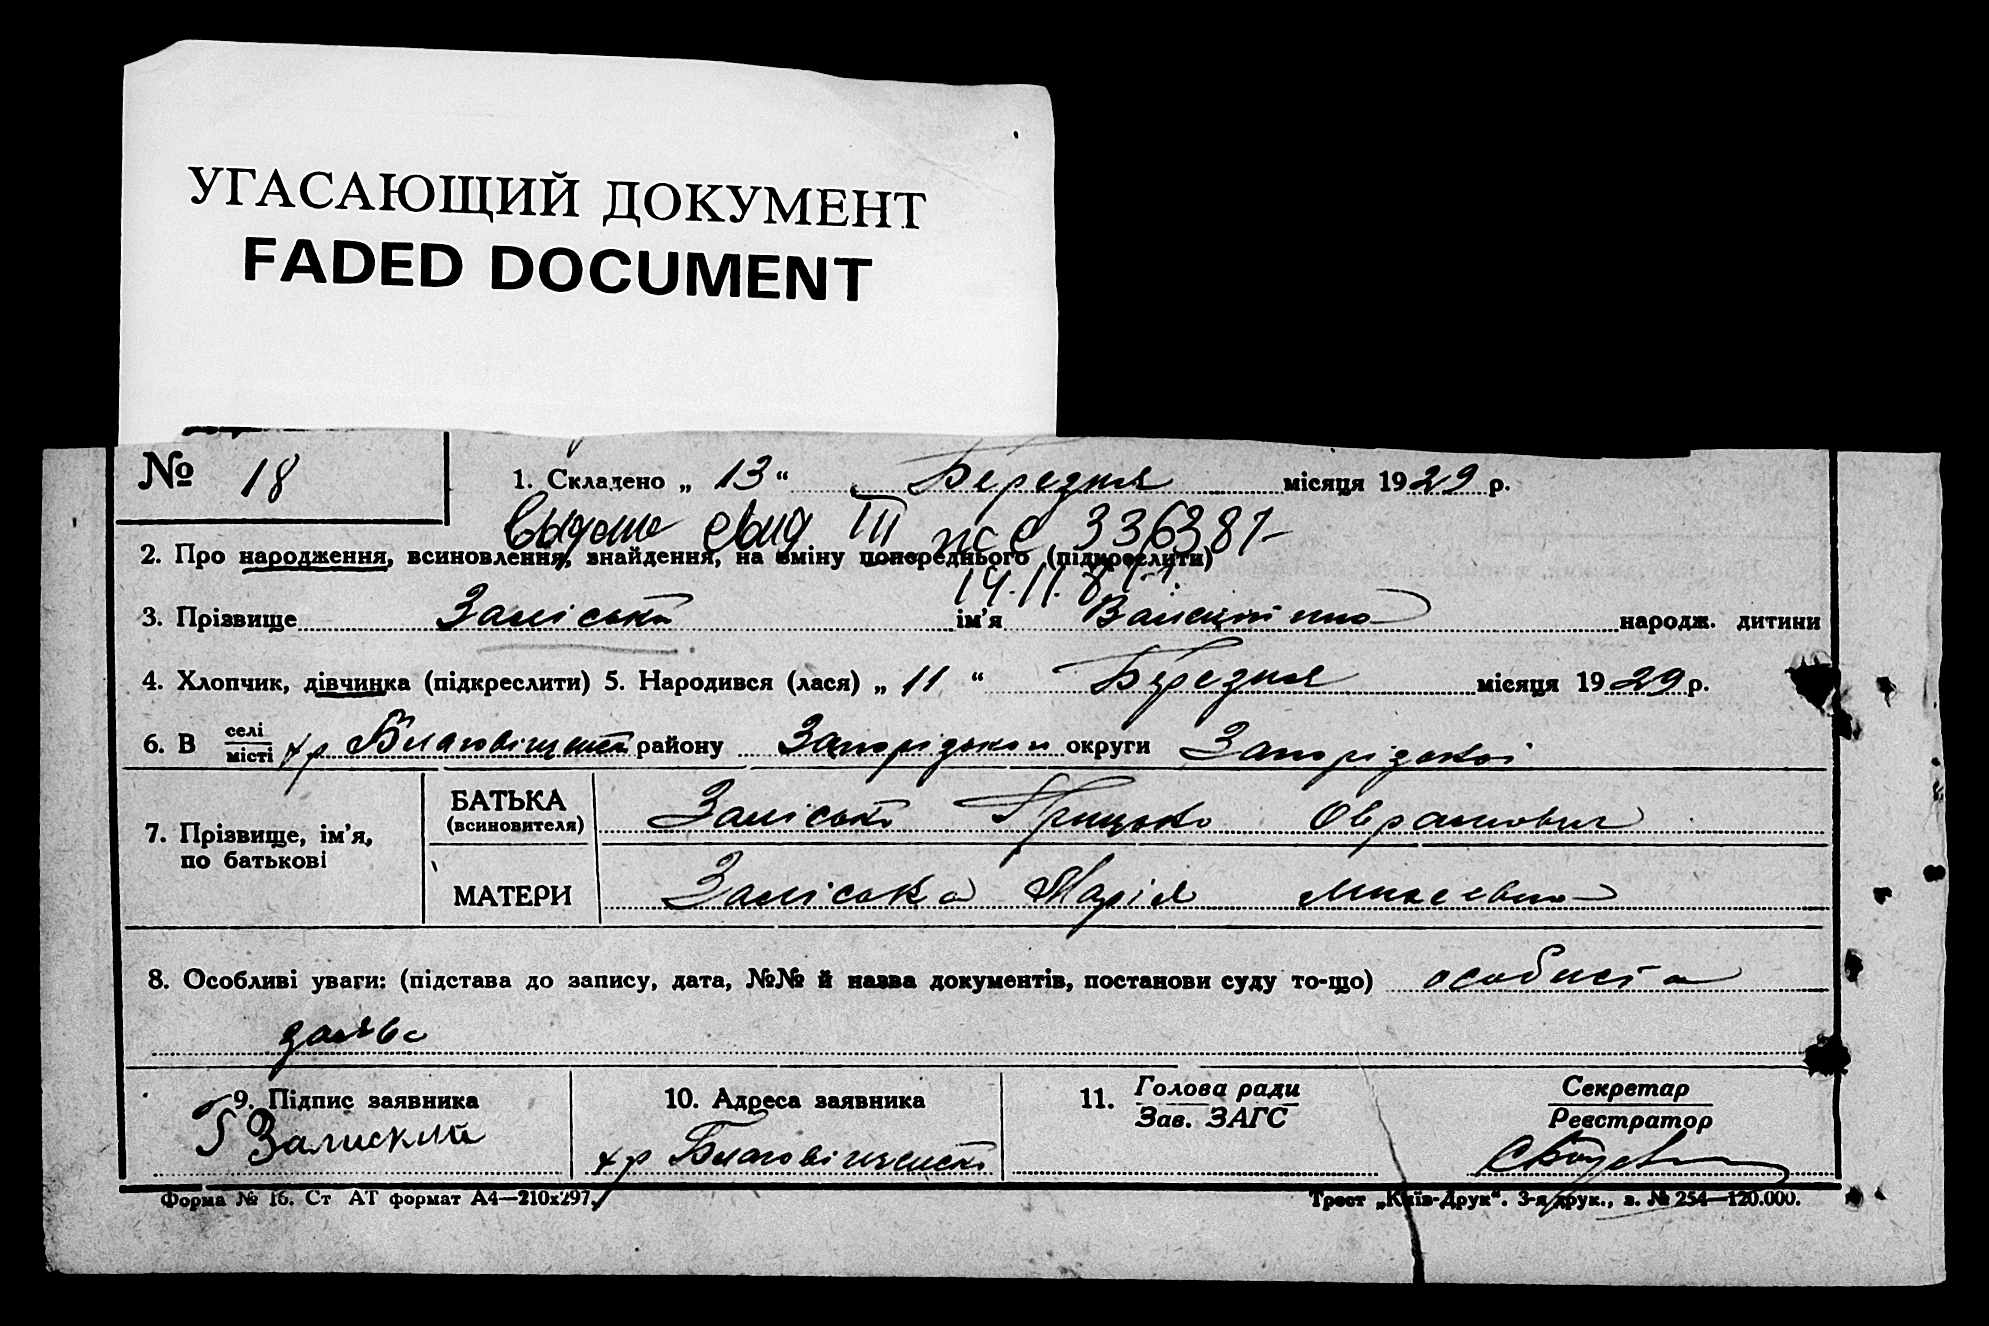 УГАСАЮЩИЙ ДОКУМЕНТ
FADED DOCUMENT
№ 18
1. Складено „ 13 “ Березня місяця 1929 р.
Выдано свид III 336381
2. Про народження, всиновлення, знайдення, на зміну попереднього (підкреслити)
14.11.
3. Прізвище Заліська ім’я Валентина народж. дитини
4. Хлопчик, дівчинка (підкреслити) 5. Народився (лася) „ 11 “ Березня місяця 1929 р.
6. В селі
місті хр району Запорізького округи Запорізької
7. Прізвище, ім’я,
по батькові
БАТЬКА
(всиновителя)
Заліський Грицько
МАТЕРИ
Заліська Марія
8. Особливі уваги: (підстава до запису, дата, №№ й назва документів, постанови суду то-що) особиста
заява
9. Підпис заявника
Г Залиский
10. Адреса заявника
хр Благовіщенське
11. Голова ради
Зав. ЗАГС
Секретар
Реєстратор
Форма № 16. Ст АТ формат А4—210х297.
Трест „Київ-Друк“. 3-я друк., з. № 254—120.000.